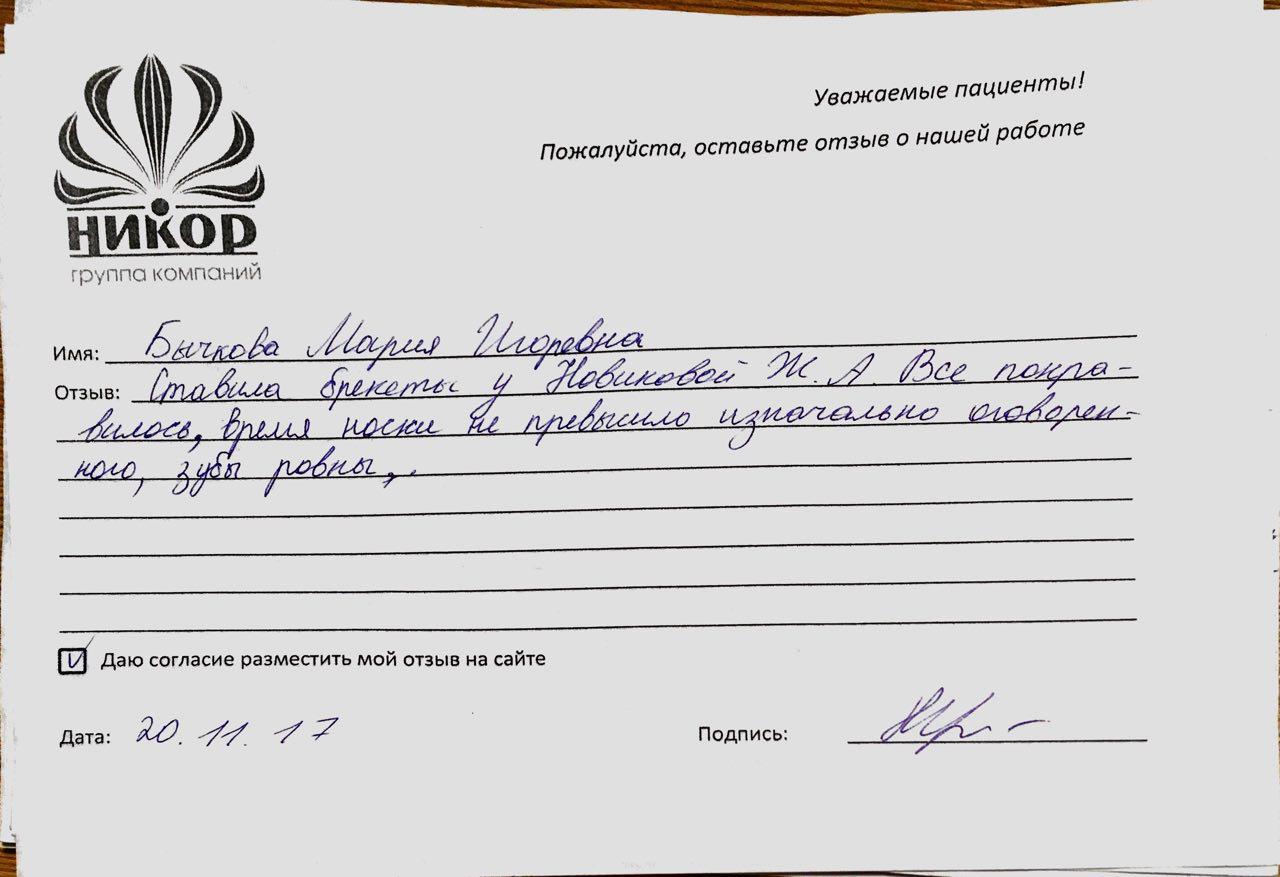 Уважаемые пациенты!
Пожалуйста, оставьте отзыв о нашей работе
НИКОР
группа компаний
Имя: Бычкова Мария Игоревна
Отзыв: Ставила брекеты у Новиковой Ж. А. Все понра-
вилось, время носки не превысило изначально оговорен-
ного, зубы ровны,.
Даю согласие разместить мой отзыв на сайте
Дата: 20.11.17 Подпись: